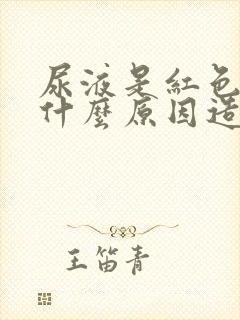 尿液是紅色
什麼原因造
王笛青